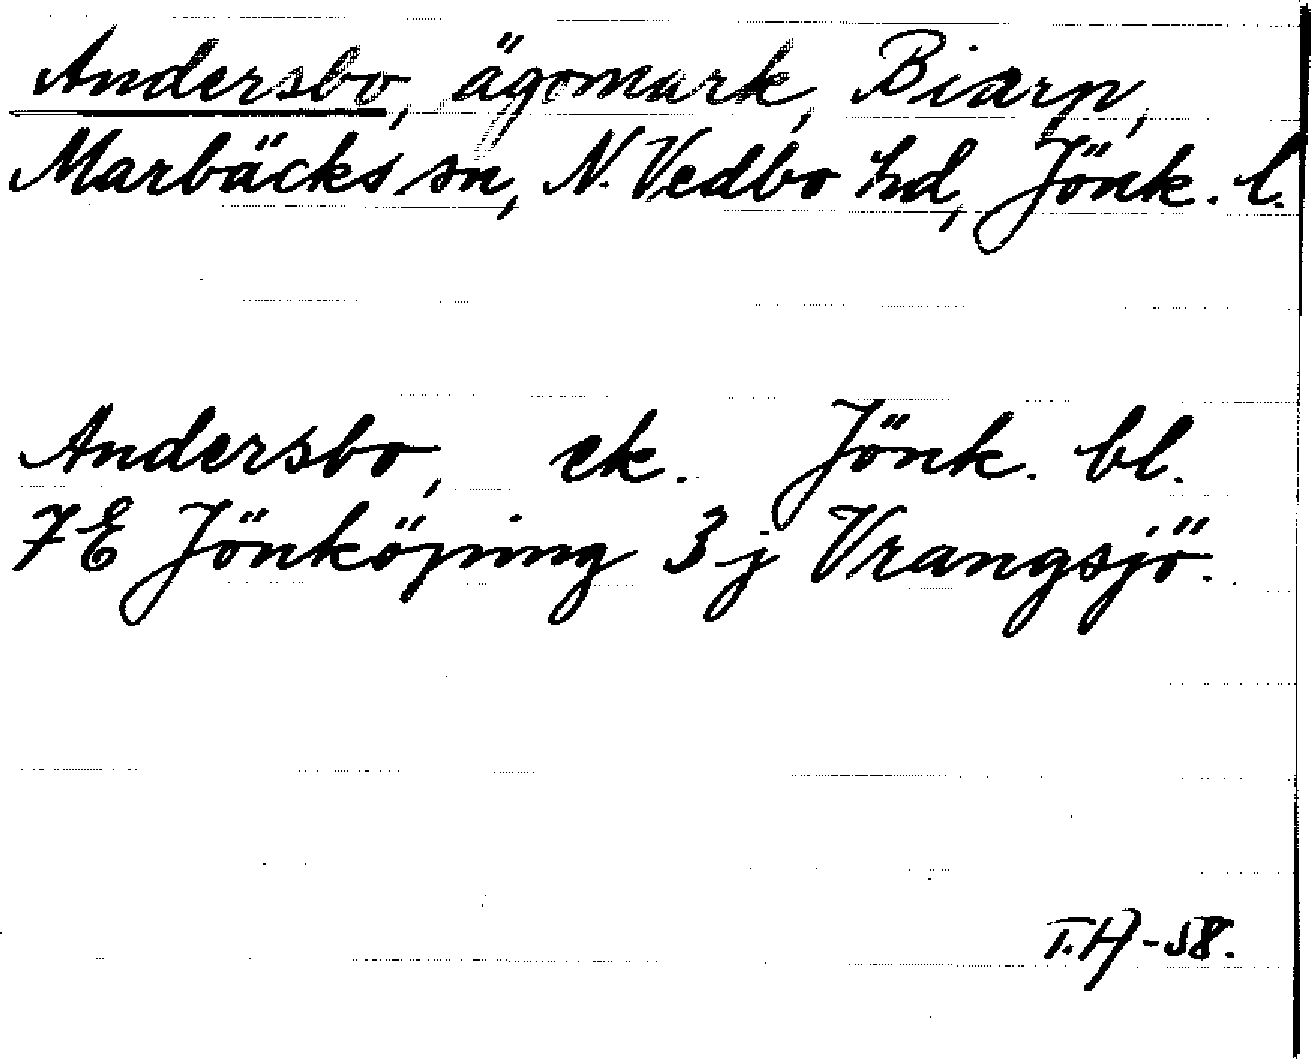 Andersbo, ägomark, Biarp,
Marbäcks sn, N. Vedbo hd, Jönk. l.
Andersbo, ek. Jönk. bl.
7E Jönköping 3 j Vrangsjö.
T.H-58.